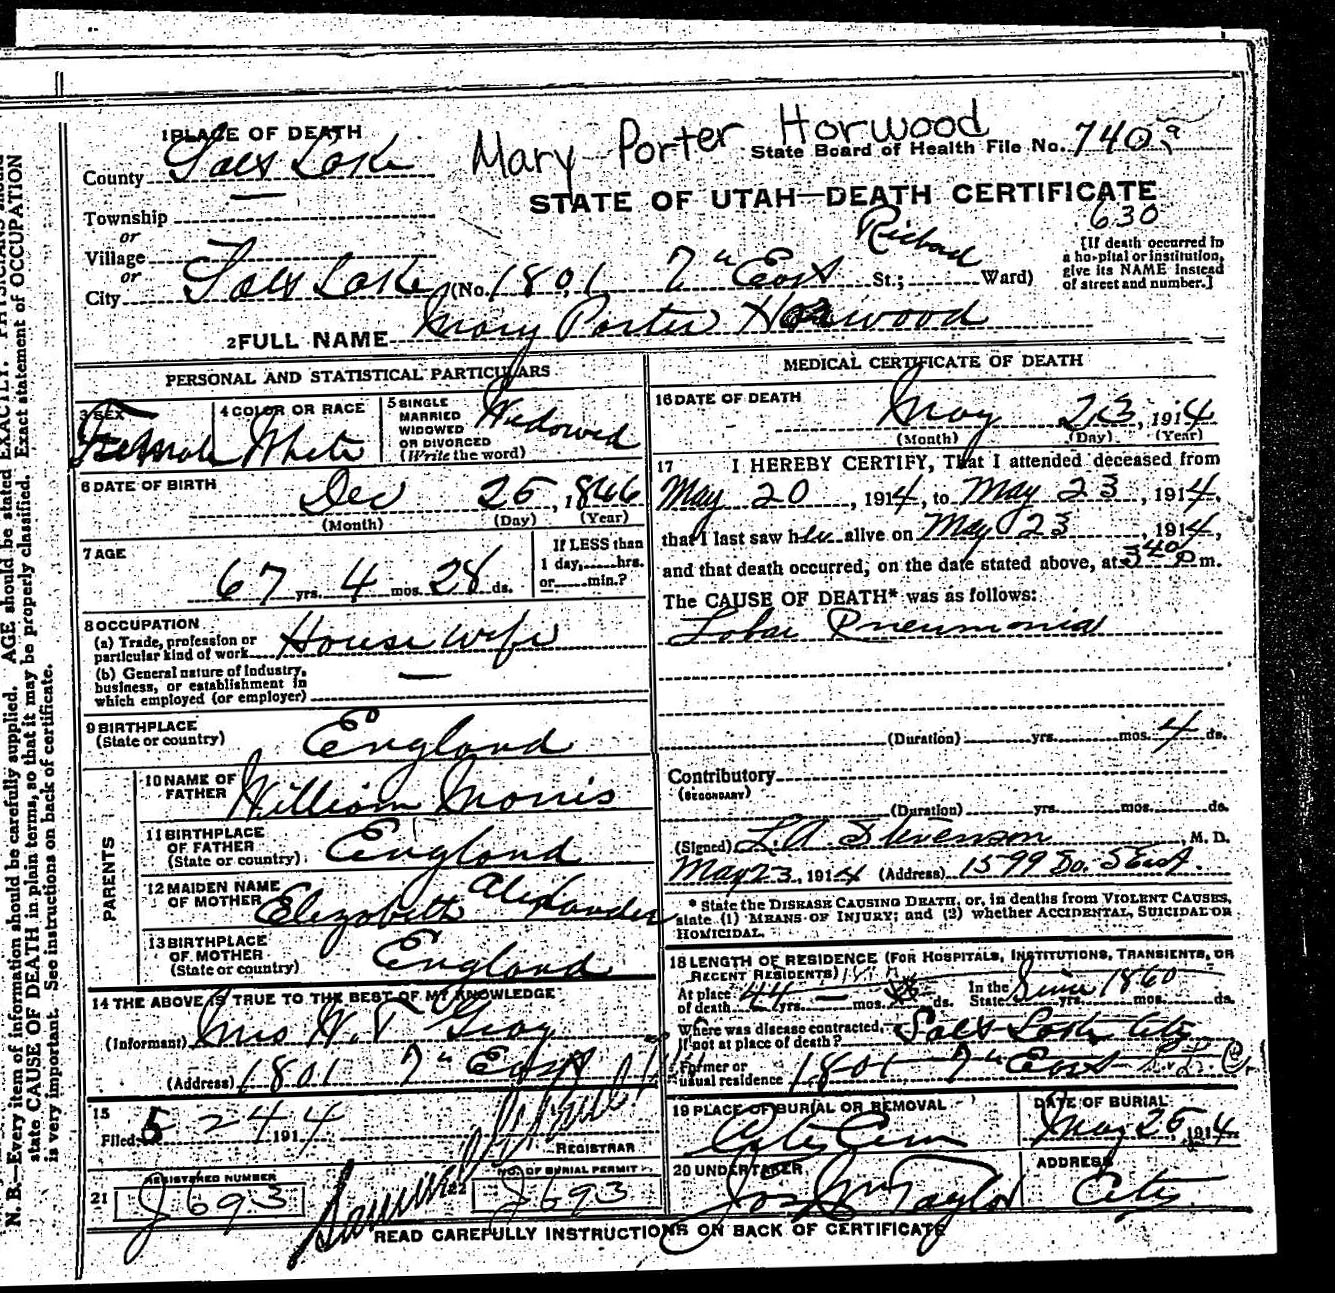 Mary Porter Horwood
1 PLACE OF DEATH
State Board of Health File No. 740
County Salt Lake
STATE OF UTAH—DEATH CERTIFICATE
630
Township
or
Village
or
City Salt Lake (No. 1801 7" East St.; Ward)
[If death occurred in
a hospital or institution,
give its NAME instead
of street and number.]
2 FULL NAME Mary Porter Horwood
PERSONAL AND STATISTICAL PARTICULARS
3 SEX Female
4 COLOR OR RACE White
5 SINGLE
MARRIED
WIDOWED
OR DIVORCED
(Write the word)
Widowed
6 DATE OF BIRTH
Dec 25, 1846
(Month) (Day) (Year)
7 AGE
67 yrs. 4 mos. 28 ds.
If LESS than
1 day, hrs.
or min.?
8 OCCUPATION
(a) Trade, profession or
particular kind of work House wife
(b) General nature of industry,
business, or establishment in
which employed (or employer) —
9 BIRTHPLACE
(State or country) England
PARENTS
10 NAME OF
FATHER William Morris
11 BIRTHPLACE
OF FATHER
(State or country) England
12 MAIDEN NAME
OF MOTHER Elizabeth Alexander
13 BIRTHPLACE
OF MOTHER
(State or country) England
14 THE ABOVE IS TRUE TO THE BEST OF MY KNOWLEDGE
(Informant) Mrs W. T Gray
(Address) 1801 7" East
15
Filed 5 24 1914
REGISTRAR
21
REGISTERED NUMBER
J 693
22
NO. OF BURIAL PERMIT
J 693
MEDICAL CERTIFICATE OF DEATH
16 DATE OF DEATH
May 23, 1914
(Month) (Day) (Year)
17 I HEREBY CERTIFY, That I attended deceased from
May 20, 1914, to May 23, 1914,
that I last saw her alive on May 23, 1914,
and that death occurred, on the date stated above, at 340 P m.
The CAUSE OF DEATH* was as follows:
Lobar Pneumonia
(Duration) yrs. mos. 4 ds.
Contributory
(SECONDARY)
(Duration) yrs. mos. ds.
(Signed) L. A. Stevenson, M. D.
May 23, 1914 (Address) 1599 So. 5 East.
* State the DISEASE CAUSING DEATH, or, in deaths from VIOLENT CAUSES,
state (1) MEANS OF INJURY; and (2) whether ACCIDENTAL, SUICIDAL OR
HOMICIDAL.
18 LENGTH OF RESIDENCE (FOR HOSPITALS, INSTITUTIONS, TRANSIENTS, OR
RECENT RESIDENTS)
At place
of death 44 yrs. — mos. ds.
In the
State Since 1860 yrs. mos. ds.
Where was disease contracted,
If not at place of death? Salt Lake City
Former or
usual residence 1801 7" East
19 PLACE OF BURIAL OR REMOVAL
City Cem
DATE OF BURIAL
May 25, 1914
20 UNDERTAKER
Jos Wm Taylor
ADDRESS
City
READ CAREFULLY INSTRUCTIONS ON BACK OF CERTIFICATE
N. B.—Every item of information should be carefully supplied. AGE should be stated EXACTLY. PHYSICIANS should
state CAUSE OF DEATH in plain terms, so that it may be properly classified. Exact statement of OCCUPATION
is very important. See instructions on back of certificate.